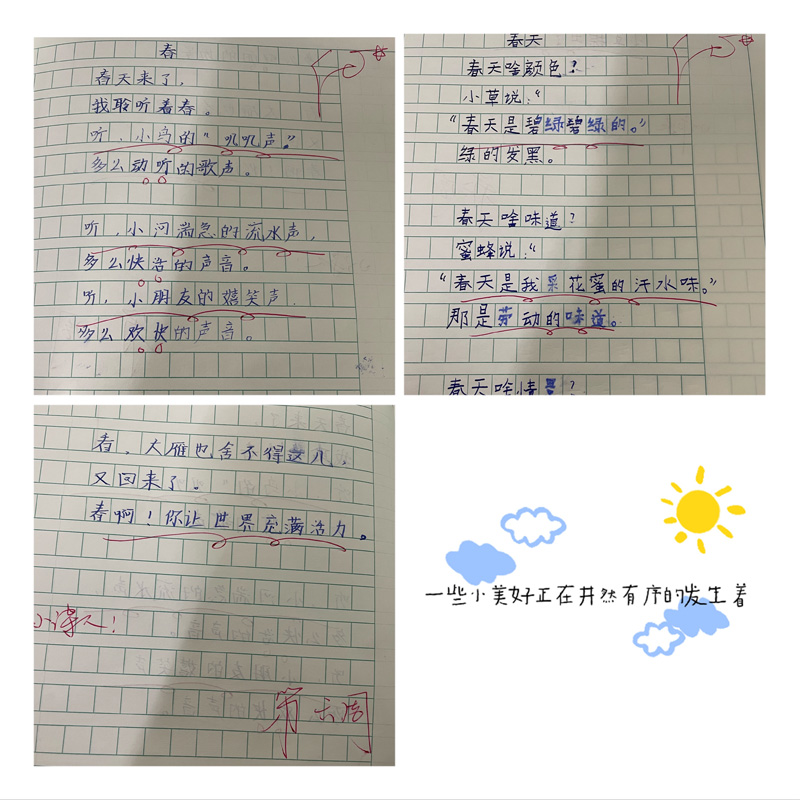 春
春天来了，
我聆听着春。
听，小鸟的“叽叽声”。
多么动听的歌声。
听，小河湍急的流水声，
多么快活的声音。
听，小朋友的嬉笑声
多么欢快的声音。
春天
春天啥颜色？
小草说：“
“春天是碧绿碧绿的。”
绿的发黑。
春天啥味道？
蜜蜂说：“
“春天是我采花蜜的汗水味。”
那是劳动的味道。
春天啥情景？
看，大雁也舍不得这儿，
又回来了。
春啊！你让世界充满活力。
小诗人！
第六周
一些小美好正在井然有序的发生着